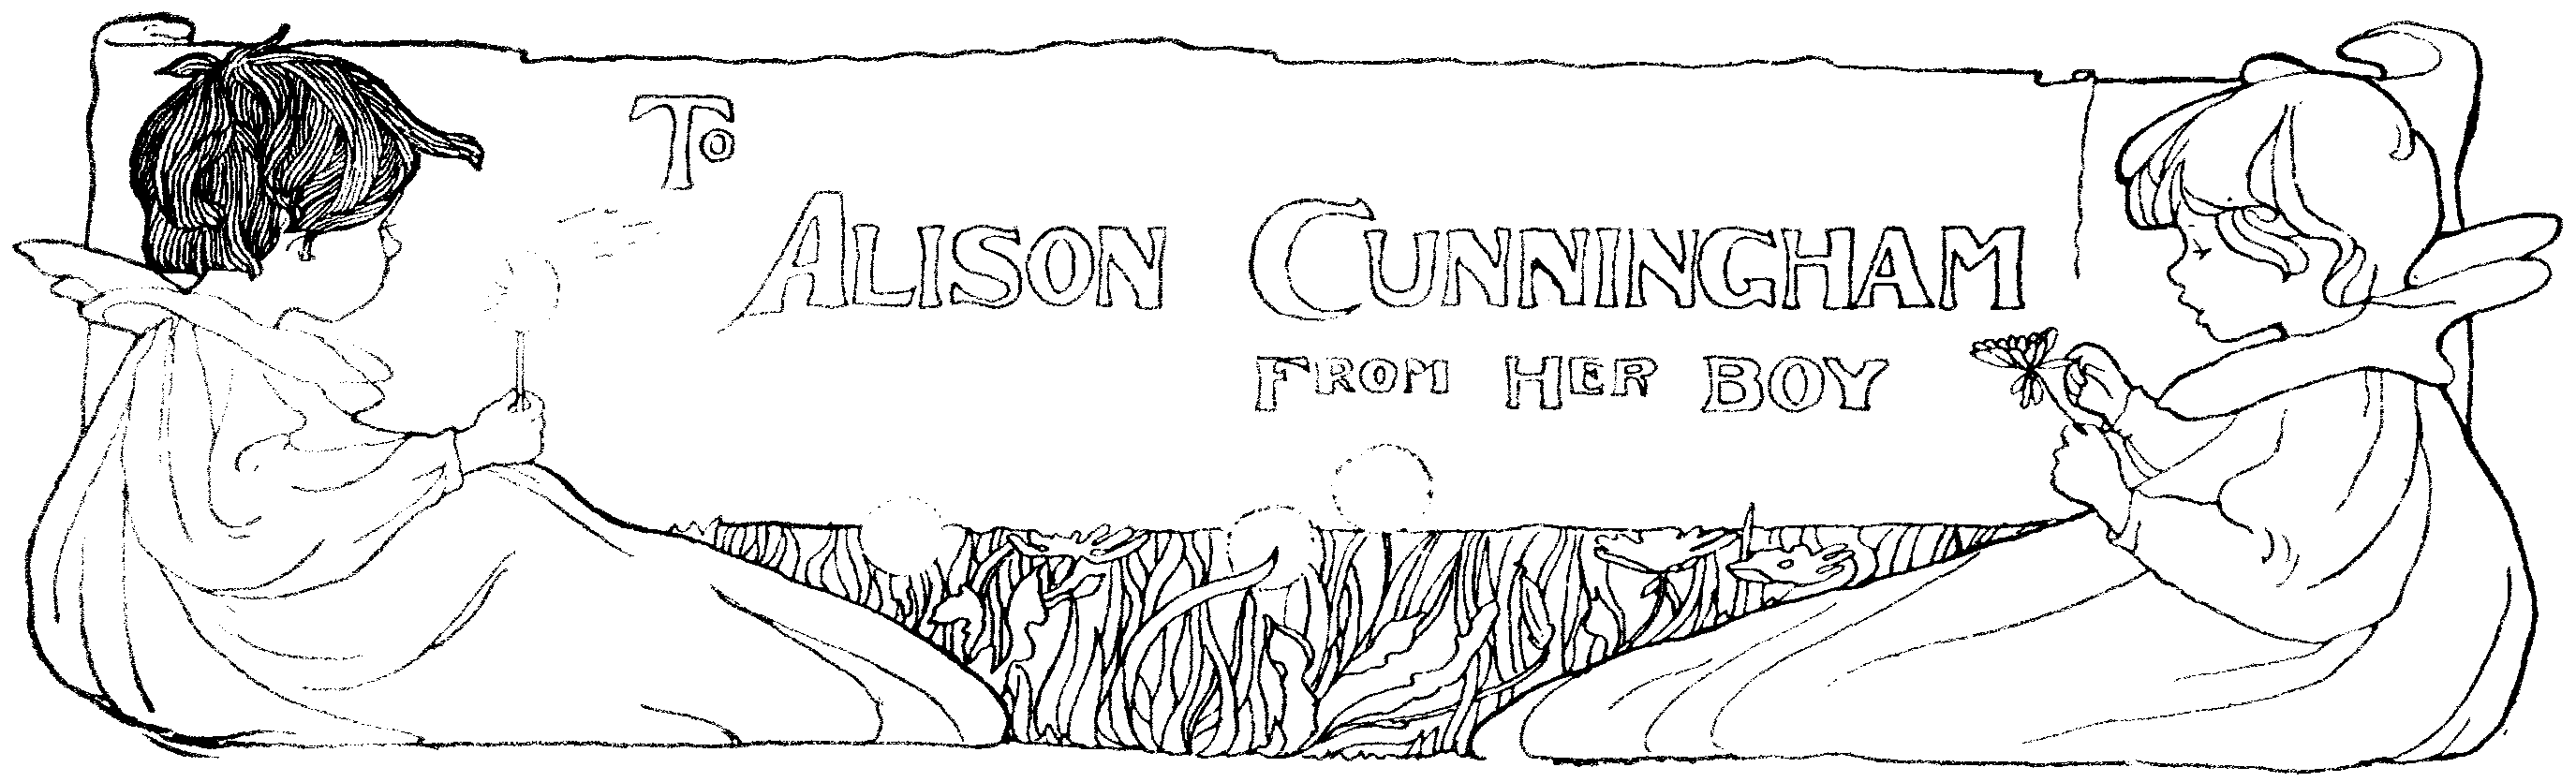 To
ALISON CUNNINGHAM
FROM HER BOY